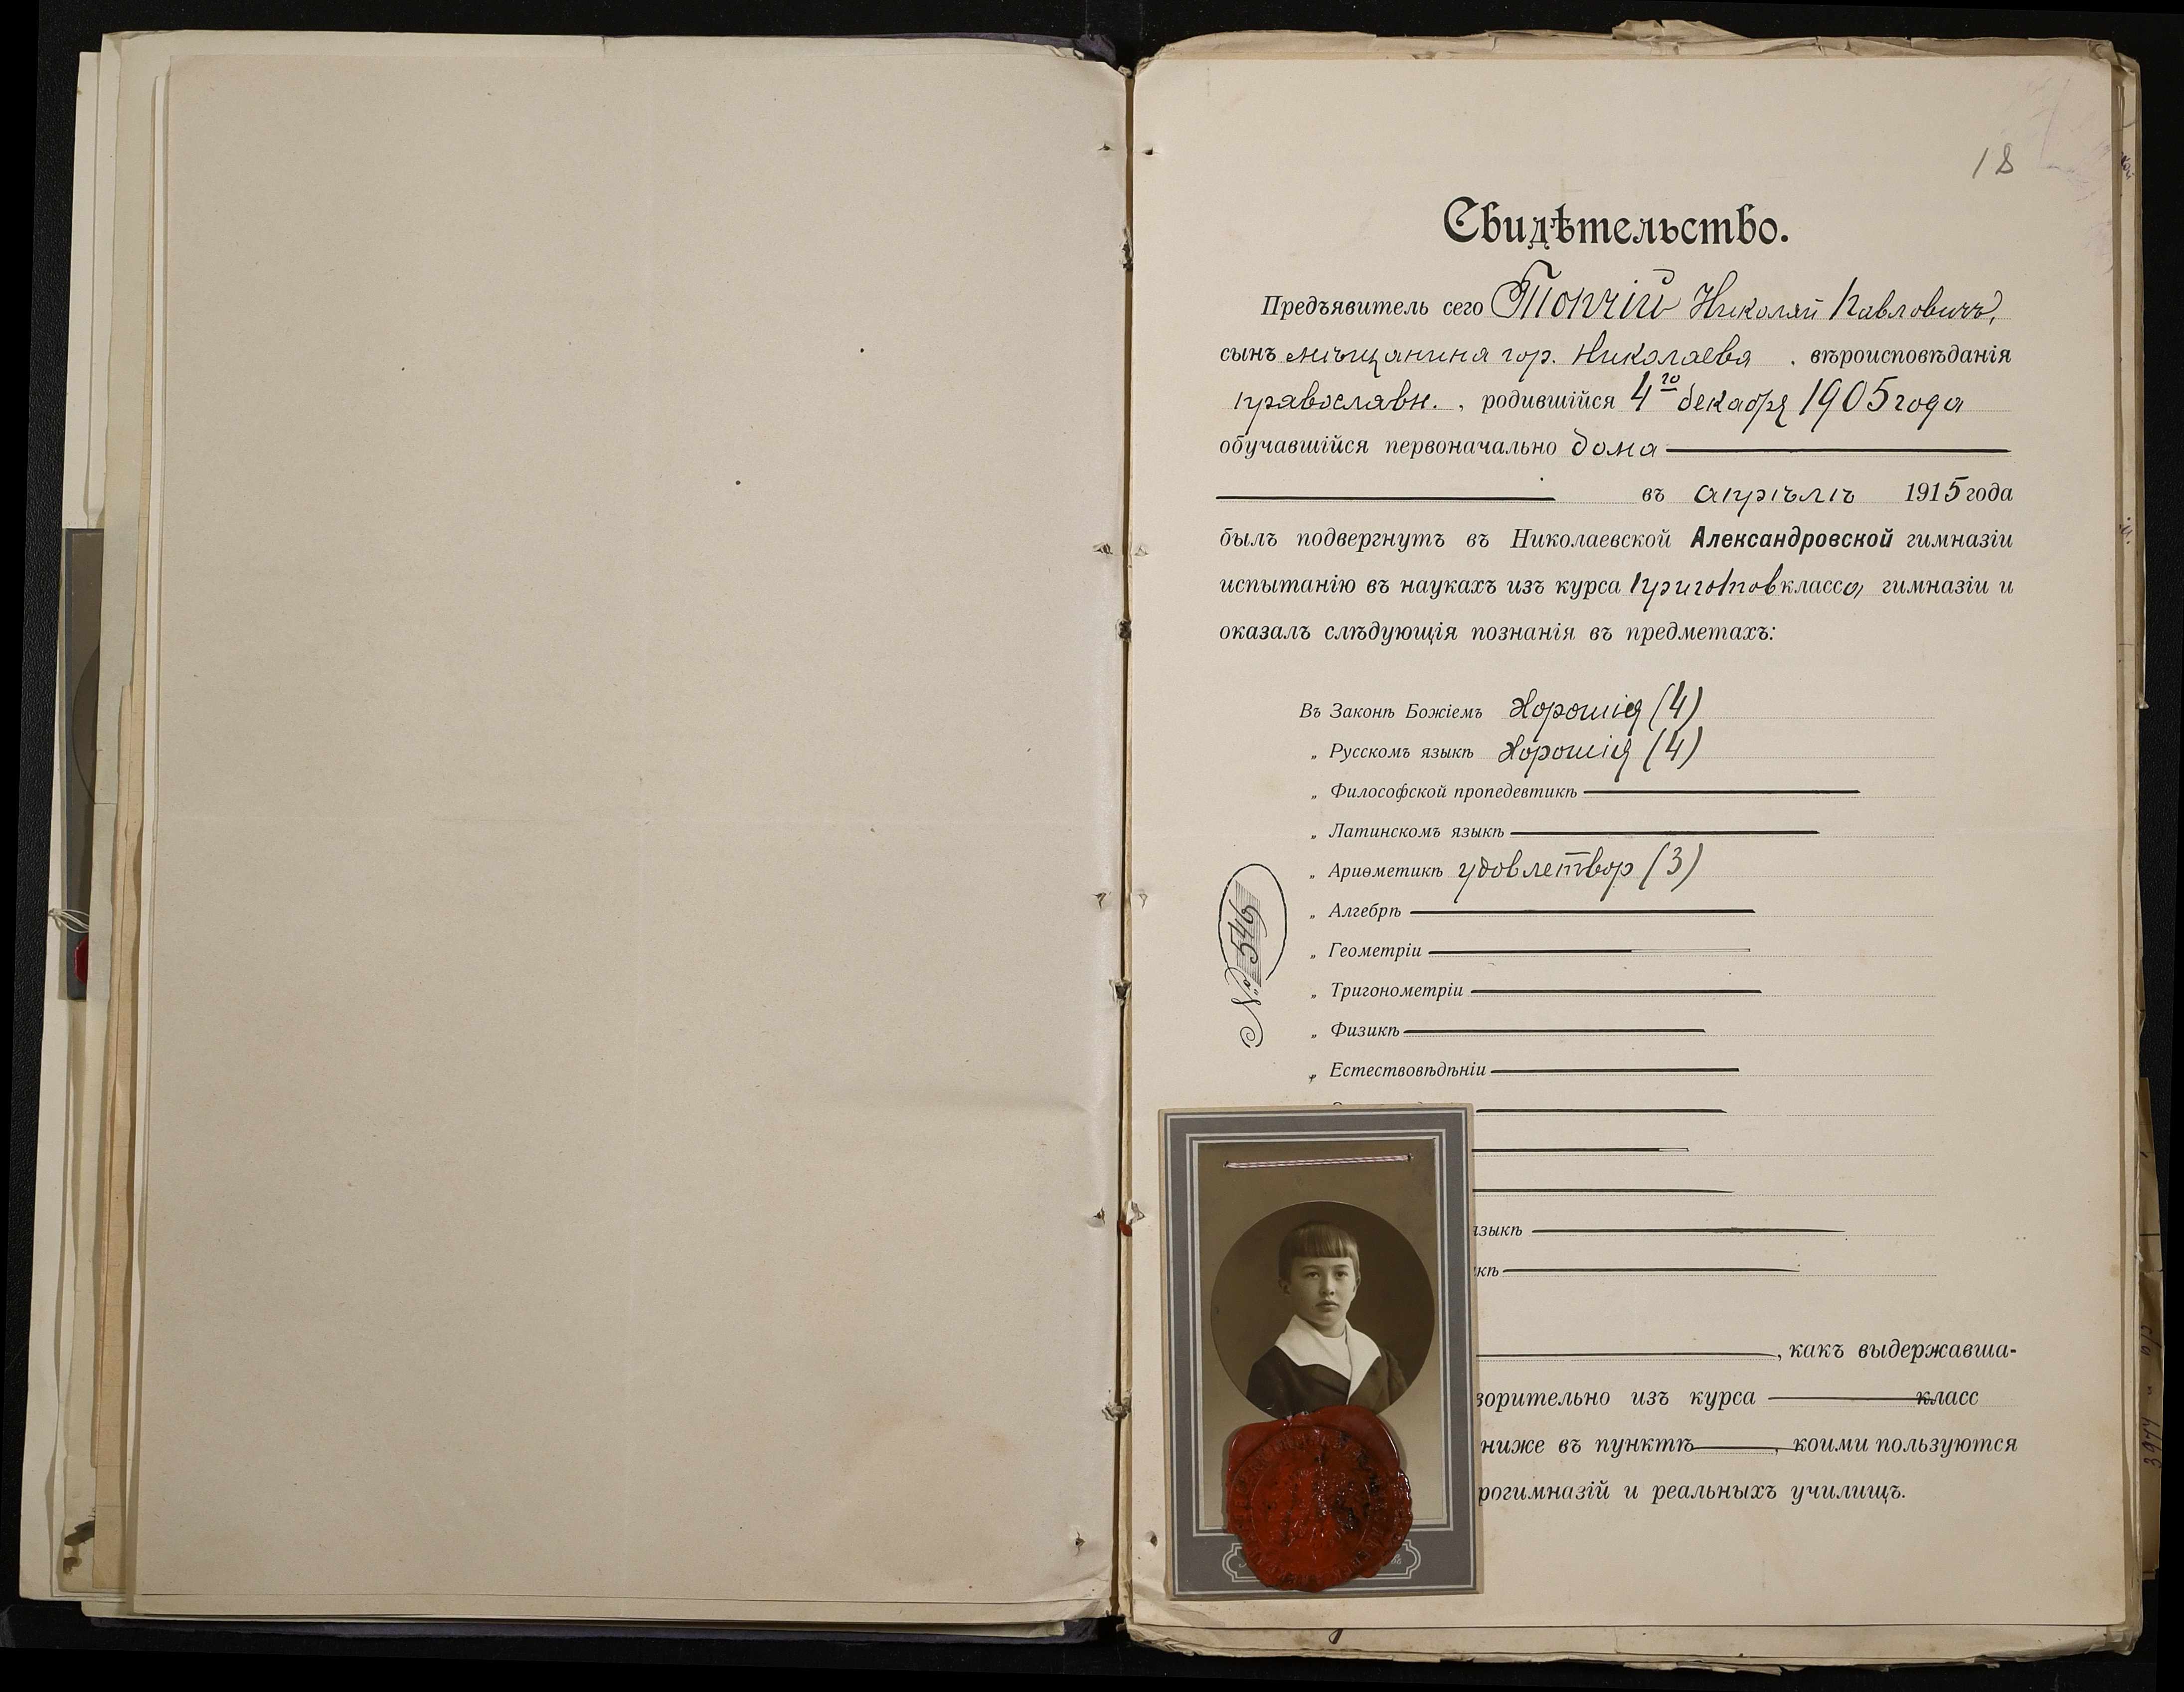 18
Свидѣтельство.
Предъявитель сего Топчій Николай Павловичъ,
сынъ мѣщанина гор. Николаева , вѣроисповѣданія
православн. , родившійся 4го декабря 1905 года
обучавшійся первоначально дома
въ апрѣлѣ 1915 года
былъ подвергнутъ въ Николаевской Александровской гимназіи
испытанію въ наукахъ изъ курса приготов класса, гимназіи и
оказалъ слѣдующія познанія въ предметахъ:
Въ Законѣ Божіемъ Хорошія (4)
„ Русскомъ языкѣ Хорошія (4)
„ Философской пропедевтикѣ
„ Латинскомъ языкѣ
„ Ариѳметикѣ удовлетвор (3)
„ Алгебрѣ
„ Геометріи
„ Тригонометріи
„ Физикѣ
„ Естествовѣдѣніи
№ 546
языкѣ
икѣ
, какъ выдержавша-
ворительно изъ курса класс
ниже въ пунктѣ , коими пользуются
рогимназій и реальныхъ училищъ.